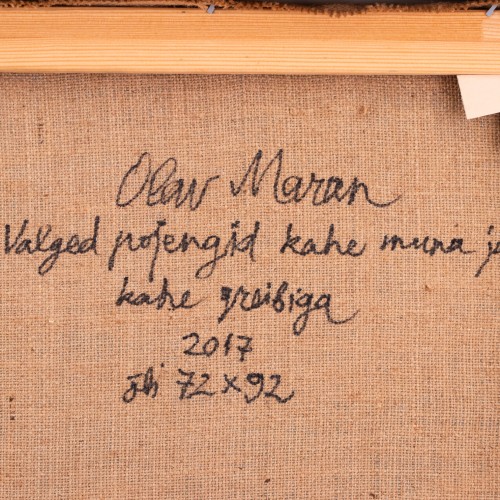 Olav Maran
Valged pojengid kahe muna ja
kahe greibiga
2017
õli 72x92